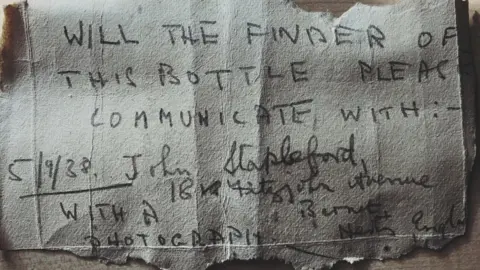 WILL THE FINDER OF
THIS BOTTLE PLEAS
COMMUNICATE WITH:-
5/9/38. John Stapleford,
18 Fitzjohn Avenue
WITH A Barnet
PHOTOGRAPH